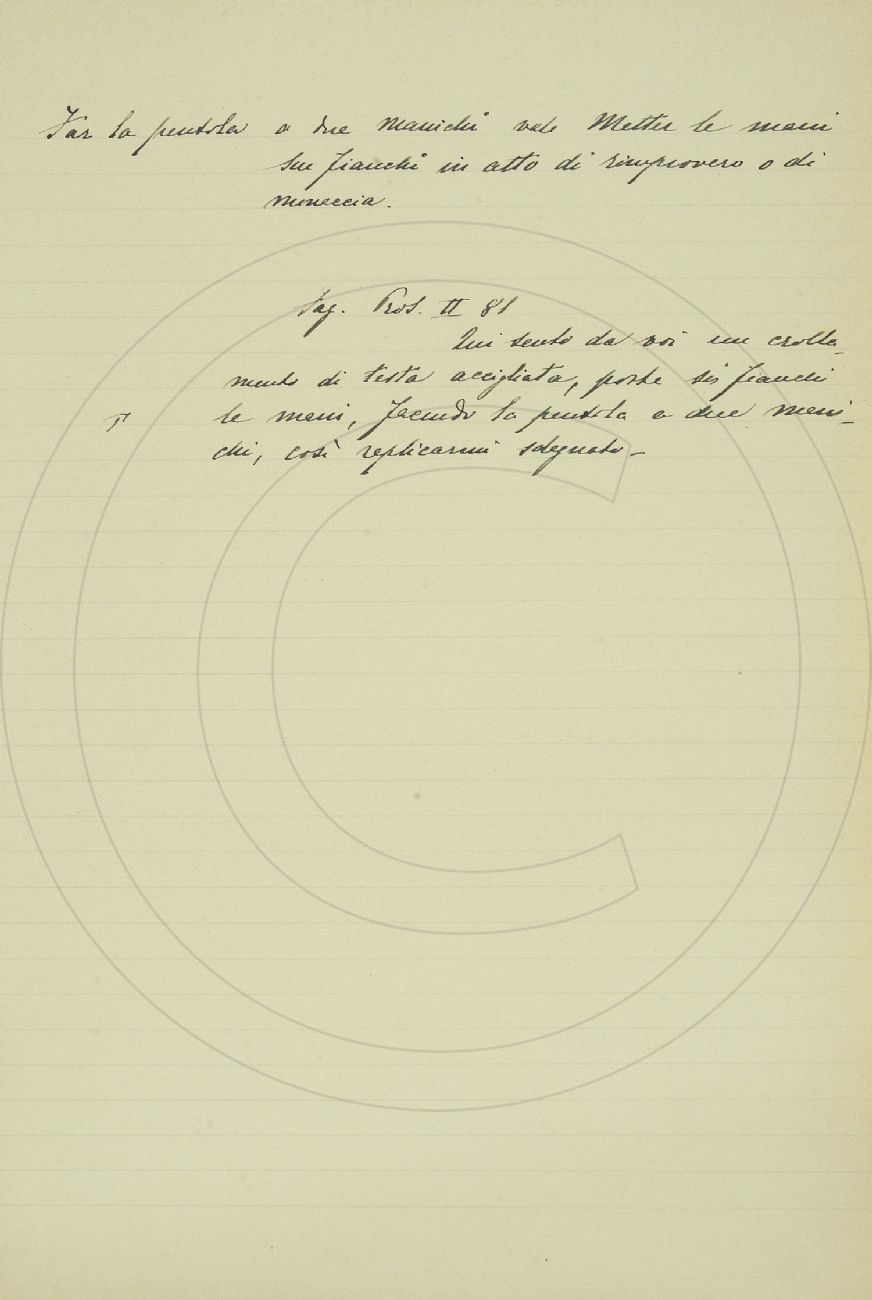 Far la pentola a due manichi vale Metter le mani
sui fianchi in atto di rimprovero o di
minaccia.
Fag. Pros. II 81
Qui sento da voi un crolla-
mento di testa accigliata, poste sui fianchi
le mani, facendo la pentola a due mani-
chi, così replicarmi sdegnato -